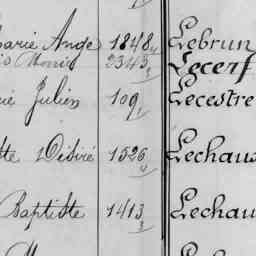 Marie Ange 1848 Lebrun
Marie 2343 Lecerf
Julien 109 Lecestre
Désiré 1526 Lechau
Baptiste 1413 Lechau